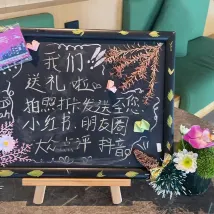 我们
送礼啦
拍照打卡发送至您
小红书、朋友圈
大众点评 抖音